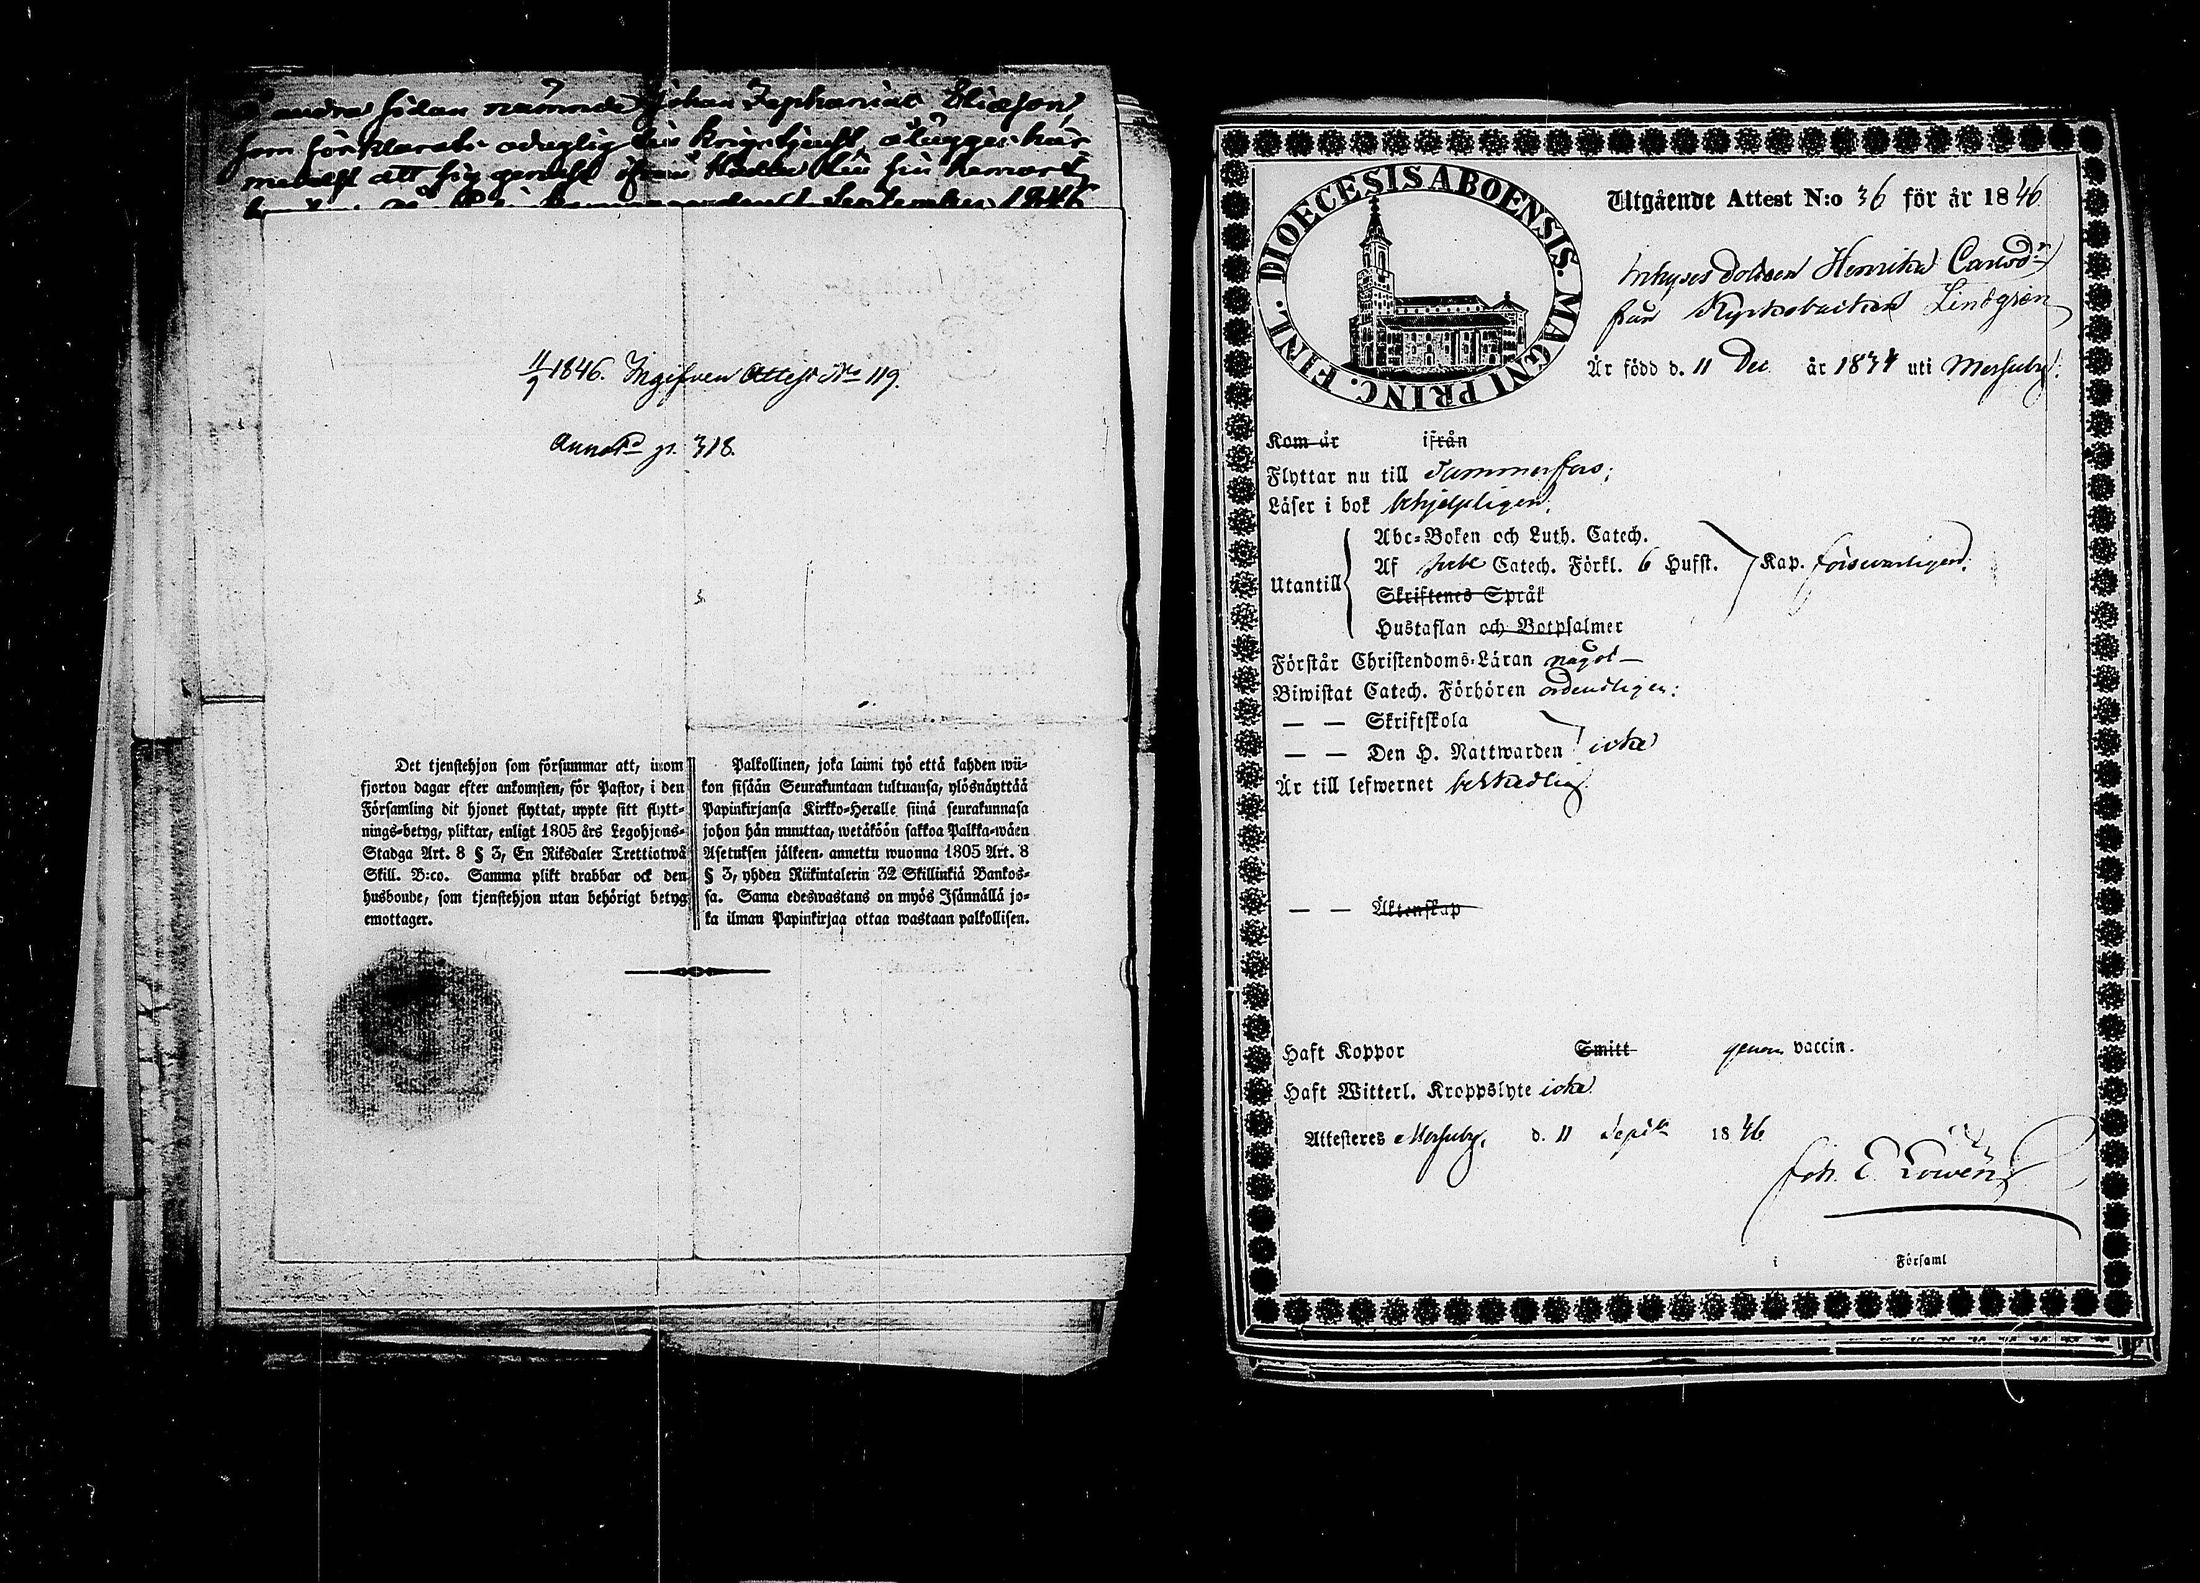 andra sidan nämnde Johan Zephanias Eliasson,
som förklarats oduglig till krigstjenst, ålägges här
medelst att sig genast ifrån Stället till sin hemort
September 1846
11/9 1846. Ingifven Attest No 119.
Annot. p. 318.
Det tjenstehjon som försummar att, inom
fjorton dagar efter ankomsten, för Pastor, i den
Församling dit hjonet flyttat, uppte sitt flytt-
nings-betyg, pliktar, enligt 1805 års Legohjons-
Stadga Art. 8 § 3, En Riksdaler Trettiotwå
Skill. B:co. Samma plikt drabbar ock den
husbonde, som tjenstehjon utan behörigt betyg
emottager.
Palkollinen, joka laimi työ että kahden wii-
kon sisään Seurakuntaan tultuansa, ylösnäyttää
Papinkirjansa Kirkko-Heralle siinä seurakunnasa
johon hän muuttaa, wetäköön sakkoa Palkka-wäen
Asetuksen jälkeen, annettu wuonna 1805 Art. 8
§ 3, yhden Riikintalerin 32 Skillinkiä Bankos-
sa. Sama edeswastaus on myös Isännällä jo-
ka ilman Papinkirjaa ottaa wastaan palkollisen.
DIOECESIS ABOENSIS. MAGNI PRINC. FINL.
Utgående Attest N:o 36 för år 1846
Inhyses dottren Henrika Carlsd:r
från Kyrkobacken Lindgren
Är född d. 11 Dec. år 1834 uti Messuby.
Kom år ifrån
Flyttar nu till Tammerfors;
Läser i bok behjelpligen.
Utantill
Abc-Boken och Luth. Catech.
Af Catech. Förkl. 6 Hufst. Kap. försvarligen.
Skriftenes Språk
Hustaflan och Botpsalmer
Förstår Christendoms-Läran något
Biwistat Catech. Förhören ordentligen:
— — Skriftskola
— — Den H. Nattwarden icke
Är till lefwernet beskedlig.
— — Äktenskap
Haft Koppor Smitt genom vaccin.
Haft Witterl. Kroppslyte icke
Attesteres Messuby, d. 11 Sept. 1846
Joh. E. Lowén
i Församl